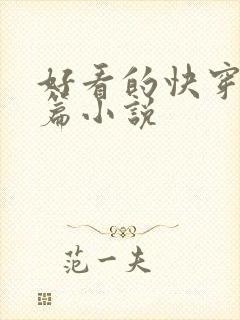 好看的快穿
篇小说
范一夫